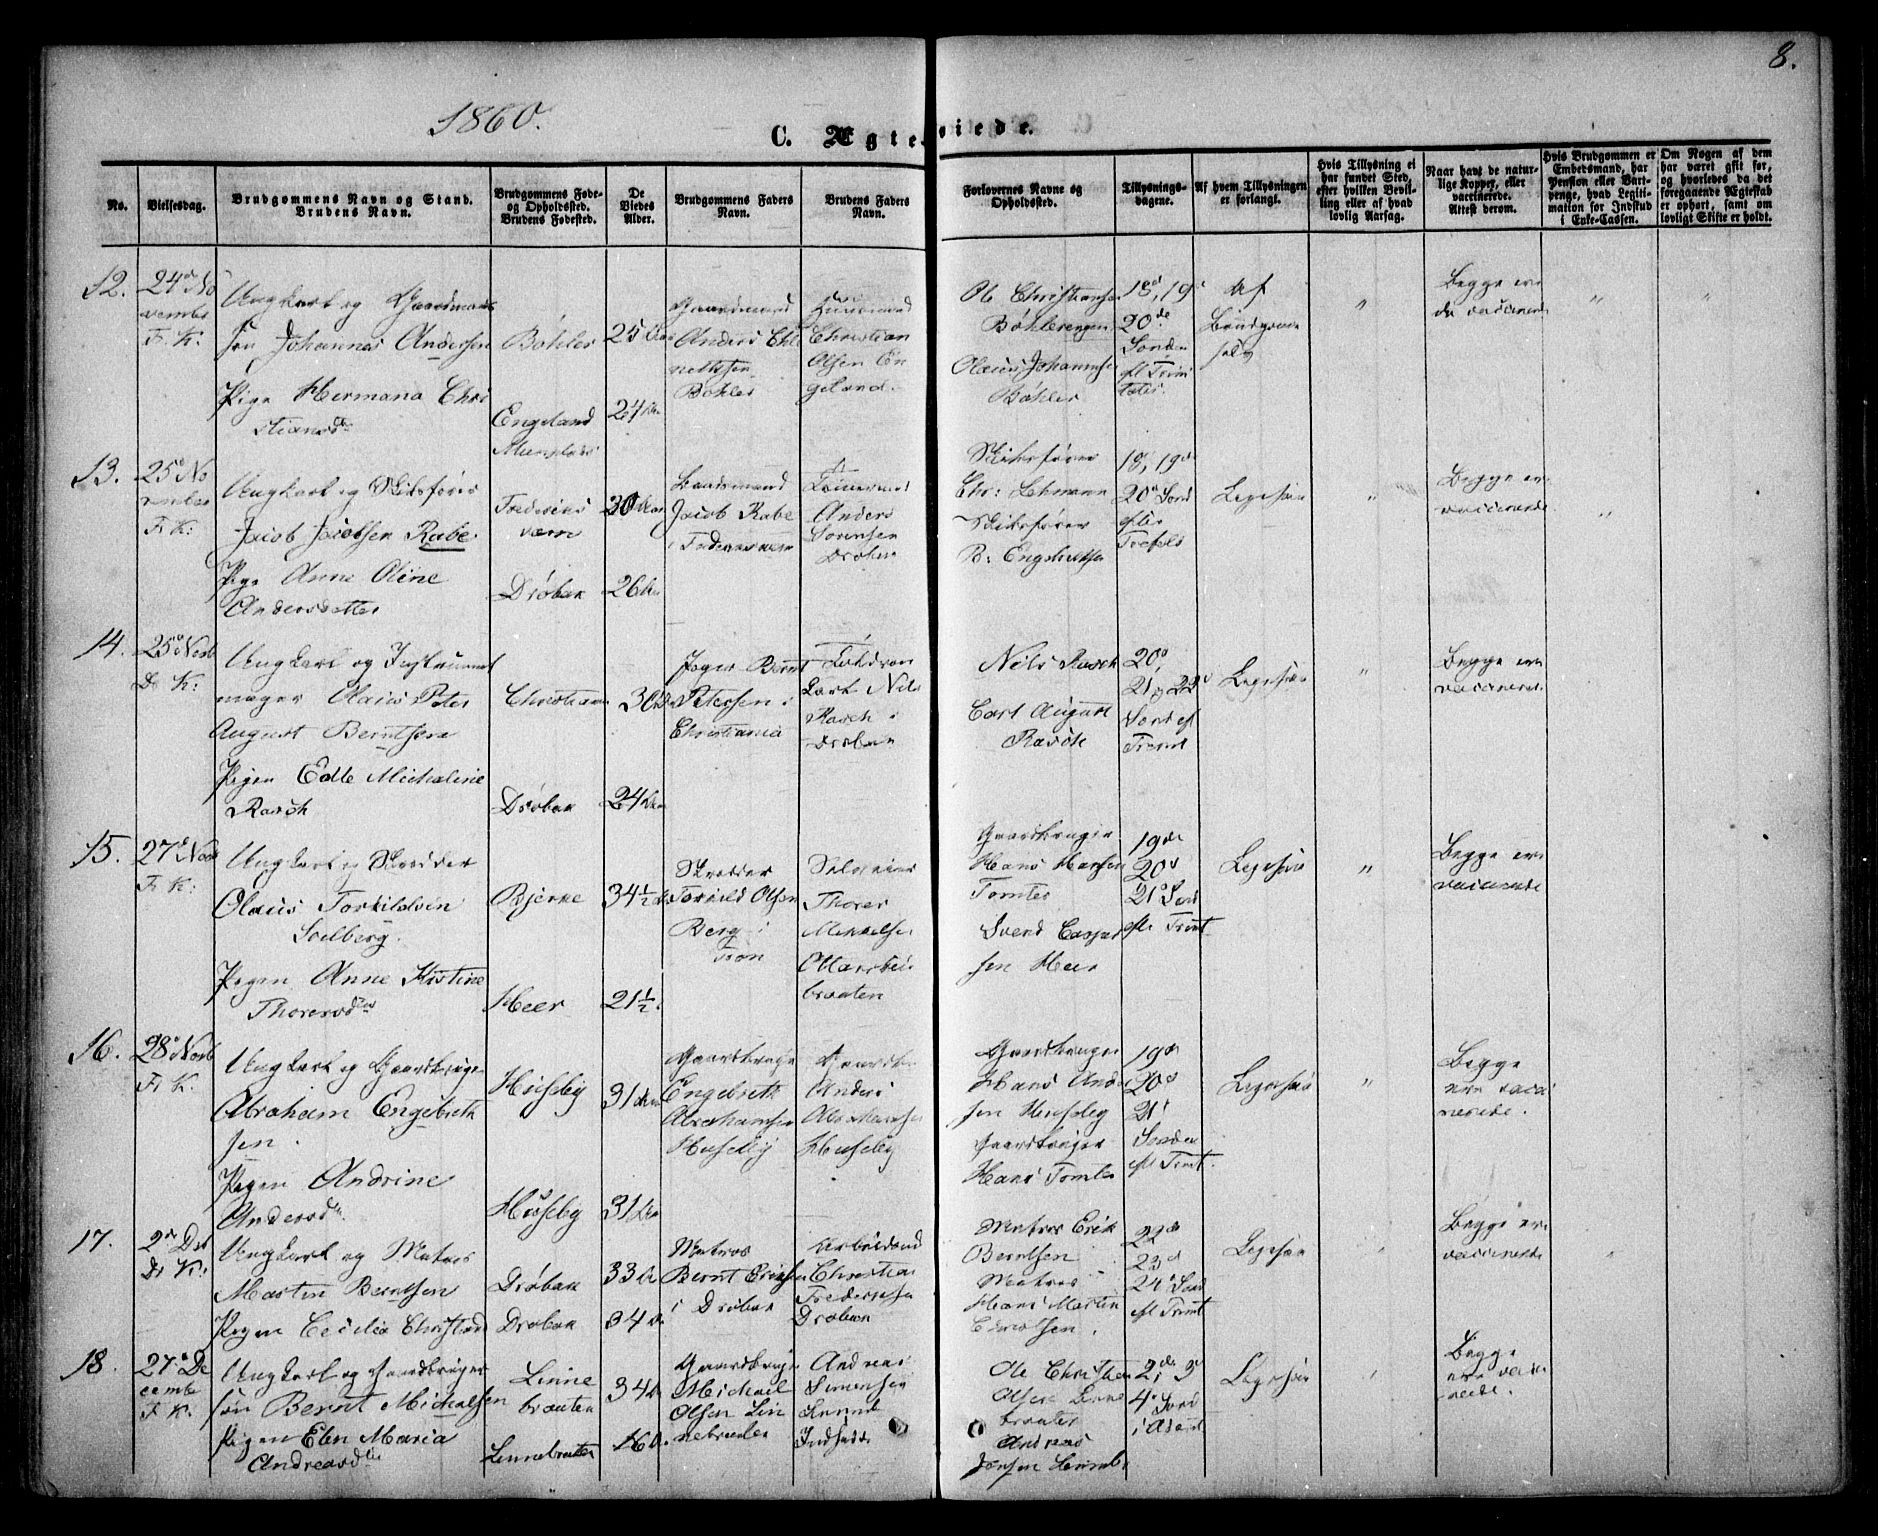 8.
1860.
C. Ægteviede.
No.
Vielsesdag.
Brudgommens Navn og Stand.
Brudens Navn.
Brudgommens Føde-
og Opholdssted.
Brudens Fødested.
De
Viedes
Alder.
Brudgommens Faders
Navn.
Brudens Faders
Navn.
Forlovernes Navne og
Opholdssted.
Tillysnings-
dagene.
Af hvem Tillysningen
er forlangt.
Hvis Tillysning ei
har fundet Sted,
efter hvilken Bevil-
ling eller af hvad
lovlig Aarsag.
Naar havt de natur-
lige Kopper, eller
vaccinerede.
Attest derom.
Hvis Brudgommen er
Embedsmand, har
Pension eller Vart-
penge, hvad Legiti-
mation for Indskud
i Enke-Cassen.
Om Nogen af dem
har været gift før,
og hvorledes da det
foregaaende Ægteskab
er ophørt, samt om
lovligt Skifte er holdt.
12.
24de No
vember
F. K.
Ungkarl og Gaardmands
søn Johannes Andersen
Pige Hermana Chri
stiansdr
Bøhler
Engeland
25 Aar
24 Aar
Gaardmand
Anders
Bøhler
Huusmand
Christian
Olsen En
geland.
Ole Christiansen
Bøhlerengen
Olaus Johannesen
Bøhler
18de, 19de
20de
Sønda
eft Trini
tatis.
Af
Brudgommen
selv
"
Begge ere
de vaccinerede
"
"
13.
25de No
vember
F. K.
Ungkarl og Skibsfører
Jacob Jacobsen Rabe
Pige Anne Oline
Andersdatter
Frederiks
værn
Drøbak
30 Aar
26 Aar
Jacob Rabe
i Frederiksværn
Tømmermand
Anders
Sørensen
Drøbak
Skibsfører
Chr: Lehmann
Skibsfører
B: Engebretsen
18, 19de
20de Sønd
efter
Trefold
Ligesaa
"
Begge ere
vaccinerede.
"
14.
25de Novb
Dr K:
Ungkarl og Instrument
mager Olaus Peter
August Berntsen
Pigen Edle Michaline
Rasch
Christiania
Drøbak
30 Aar
24 Aar
Bernt
Petersen i
Christiania
Nils
Rasch i
Drøbak
Nils Rasch
Carl August
Rasch
20de
21 og 22de
Sønd eft
Trenit
Ligesaa
"
Begge ere
vaccinerede.
15.
27de Novb
Fr K:
Ungkarl og Skrædder
Olaus Torkildsen
Solberg.
Pigen Anne Kistine
Thoresdtr
Bjerke
Heer
34 1/2
21 1/2
Skrædder
Torkild Olsen
Berg i
Fron
Selveier
Thorer
Mikkelsen
Ottarsbøl
braaten
Gaardbruger
Hans Hansen
Tomter
Svend Casper
sen Heer
19de
20de
21de Sønd
eft Trinit
Ligesaa
"
Begge ere
vaccinerede
16.
28de Novb
Fr K.
Ungkarl og Gaardbruger
Abraham Engebreth
sen.
Pigen Andrine
Andersdtr.
Huseby
Huseby
31 Aar
31 Aar
Gaardbruger
Engebreth
Abrahamsen
Huseby
Gaardbr
Anders
Abrahamsen
Huseby
Gaardbruger
Hans Ander
sen Huseby
Gaardbruger
Hans Tomter
19de
20de
21de
Søndag
eft Trinit.
Ligesaa
"
Begge
ere vacci
nerede.
17.
2den Dec
Dr K:
Ungkarl og Matros
Martin Berntsen
Pigen Cecilia Christiansd
Drøbak
Drøbak
33 Aar
34 A
Matros
Bernt Eriksen
i Drøbak
Arbeidsmand
Christian
Frederiksen
Drøbak
Matros Erik
Berntsen
Matros
Hans Martin
22de
23de
24de Sønd
eft Trinit
Ligesaa
"
Begge ere
vaccinerede
"
18.
27de De
cember
F. K.
Ungkarl og Gaardbruger
søn Bernt Michalsen
Pigen Elen Maria
Andreasdtr
Linne
braaten
Linnebraaten
34 A
Gaardbruger
Michael
Olsen Lin
nebraaten
Andreas
Simensen
Ole Christian
Olsen Linne
braaten
Andreas
2den, 3de
4de Sønd
i Advent
Ligesaa
"
Begge
ere vacci
nerede.